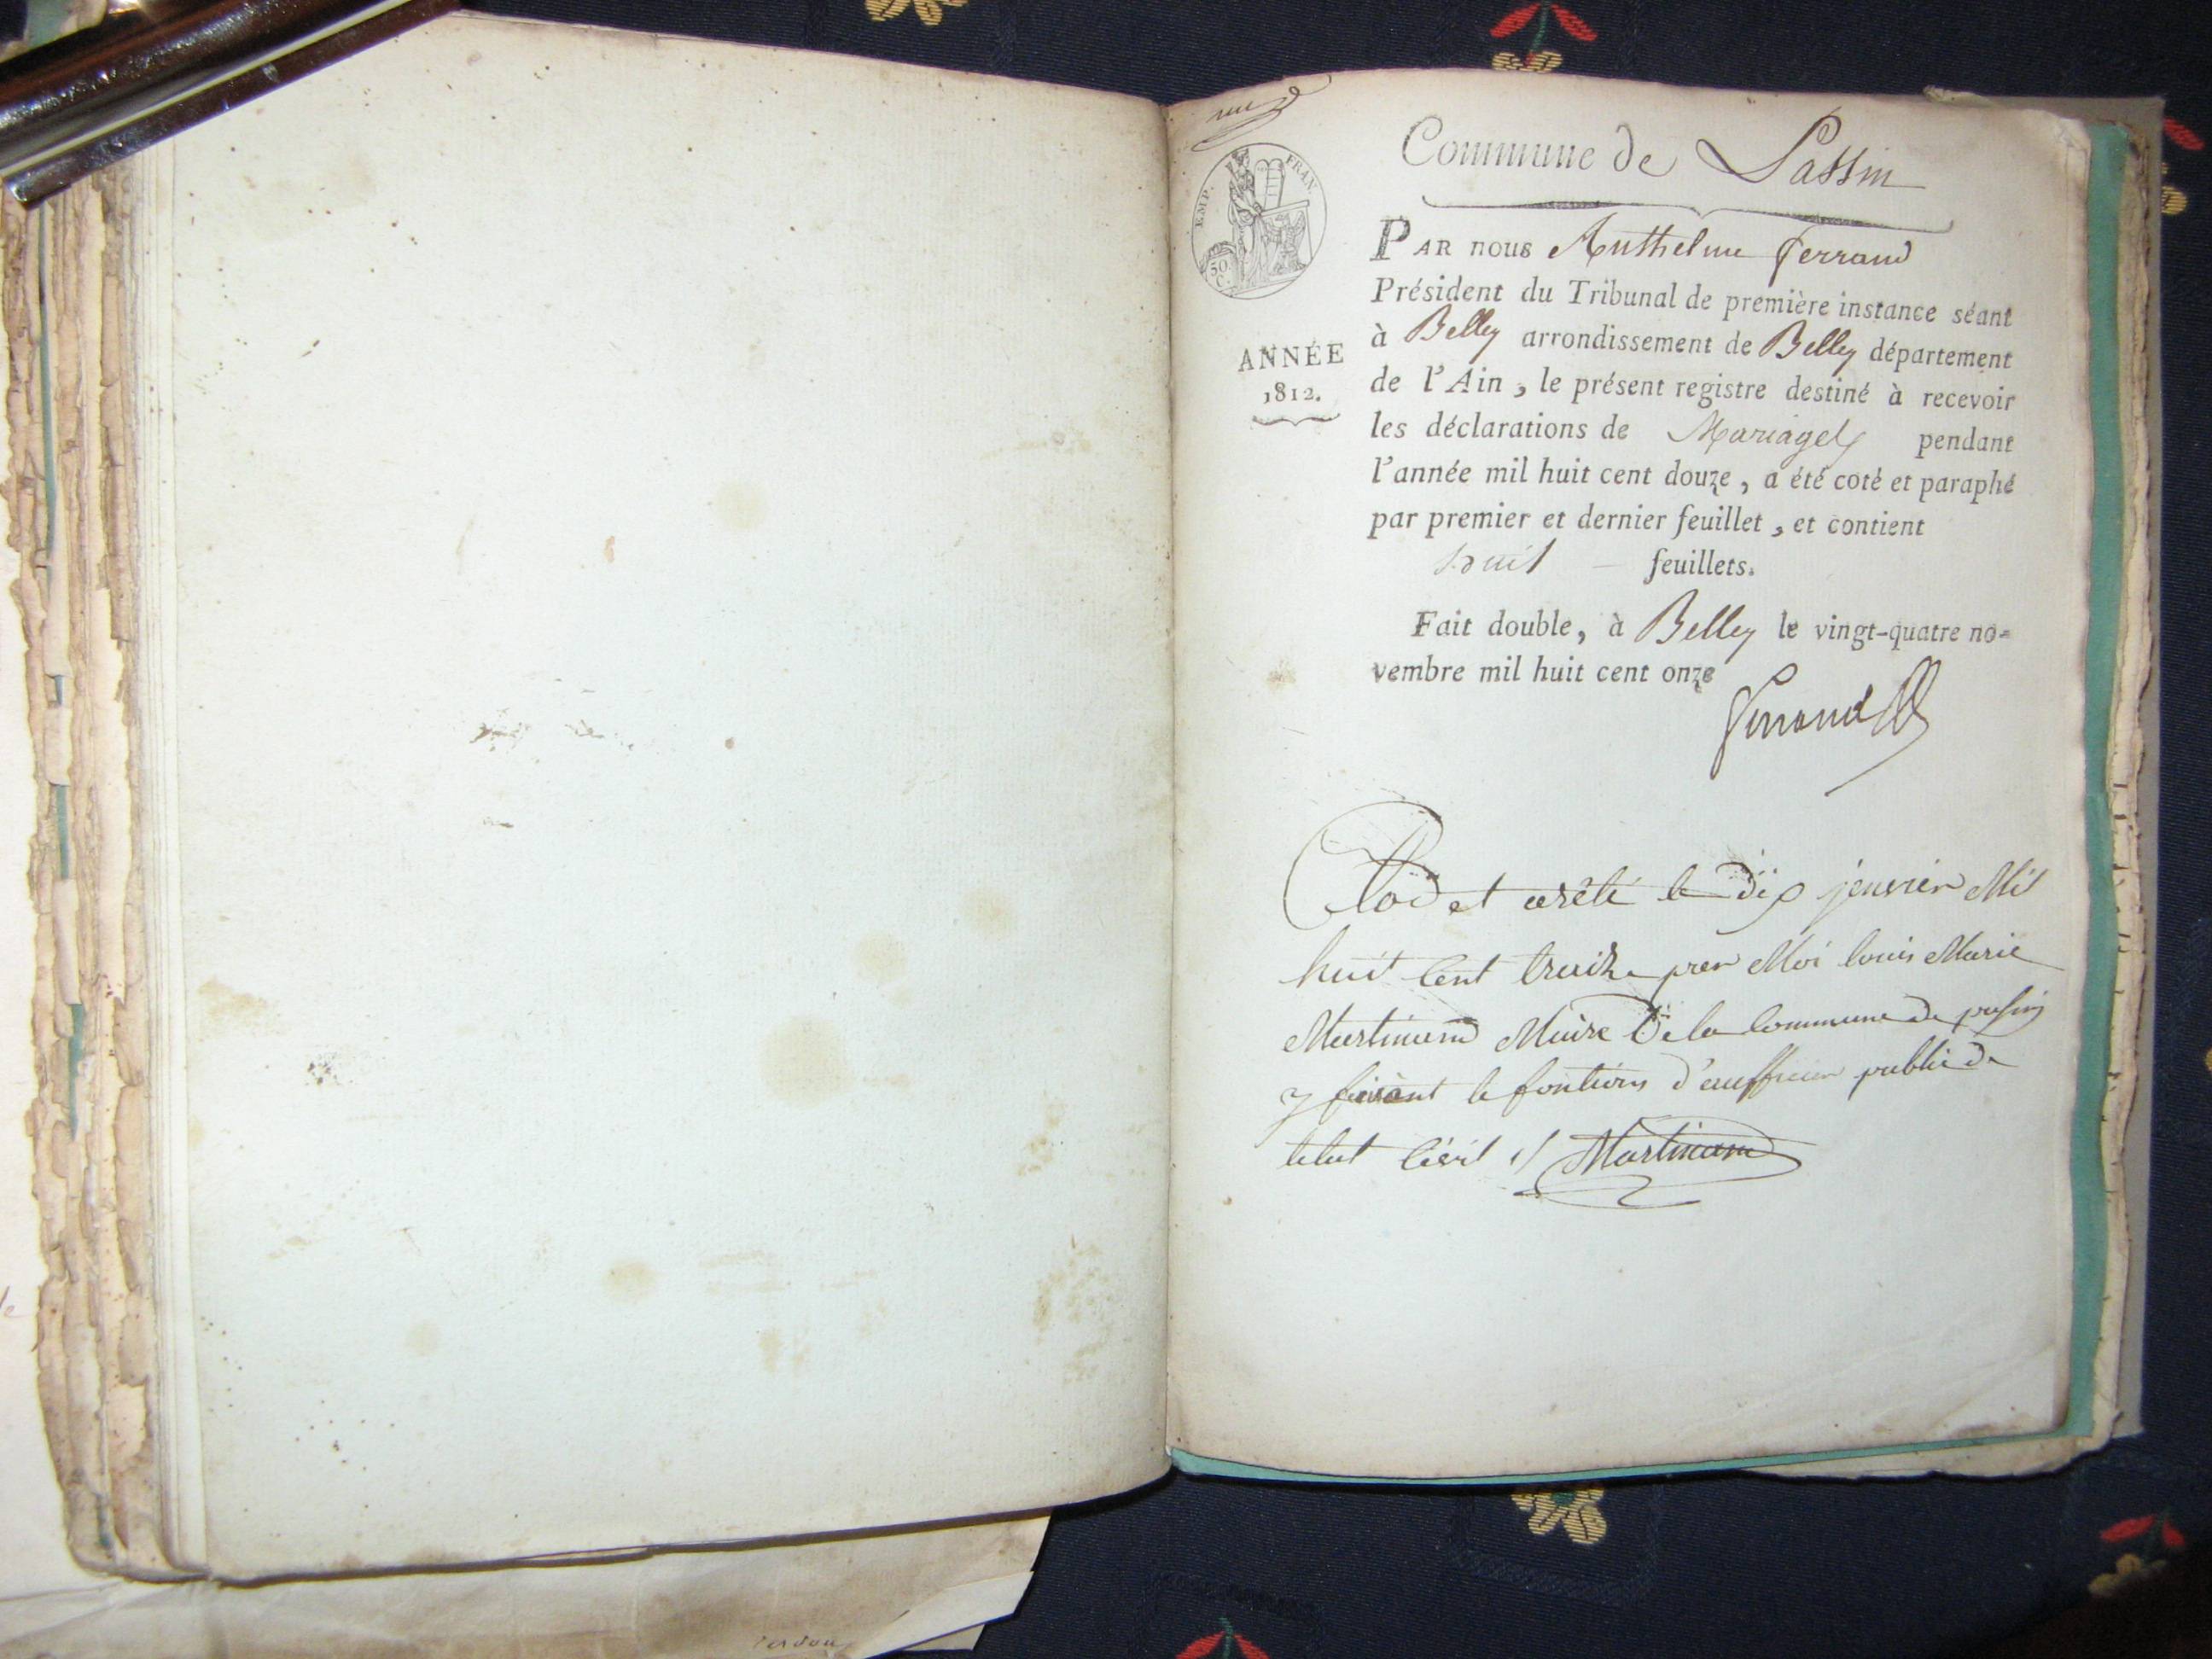 Commune de Passin
EMP. FRAN.
50
C.
ANNÉE
1812.
PAR nous Anthelme Ferrand
Président du Tribunal de première instance séant
à Belley arrondissement de Belley département
de l'Ain, le présent registre destiné à recevoir
les déclarations de Mariages pendant
l'année mil huit cent douze, a été coté et paraphé
par premier et dernier feuillet, et contient
huit feuillets.
Fait double, à Belley le vingt-quatre no=
vembre mil huit cent onze
Ferrand
Clod et arêté le dix janvier Mil
huit Cent treize par Moi louis Marie
Martinand Maire De la Commune de passin
y faisant le fontions d'aufficier public de
letat Civil Martinand